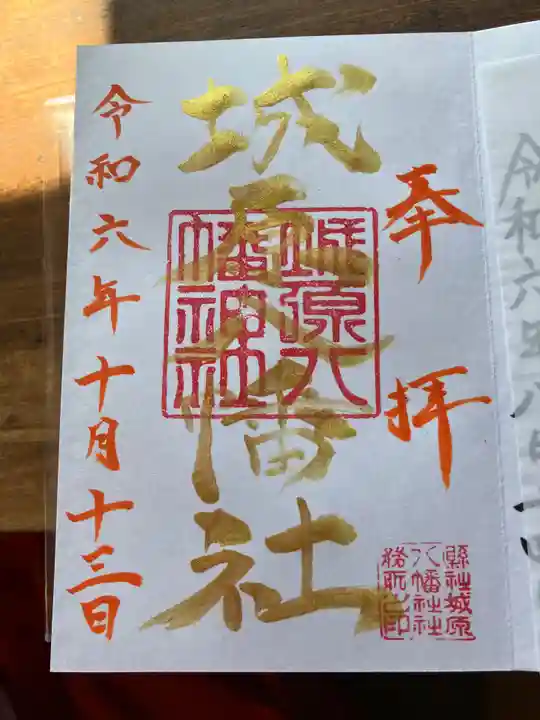 奉拝
城原八幡社
城原八
幡神社
令和六年十月十三日
縣社城原
八幡社社
務所之印
令和六年八月